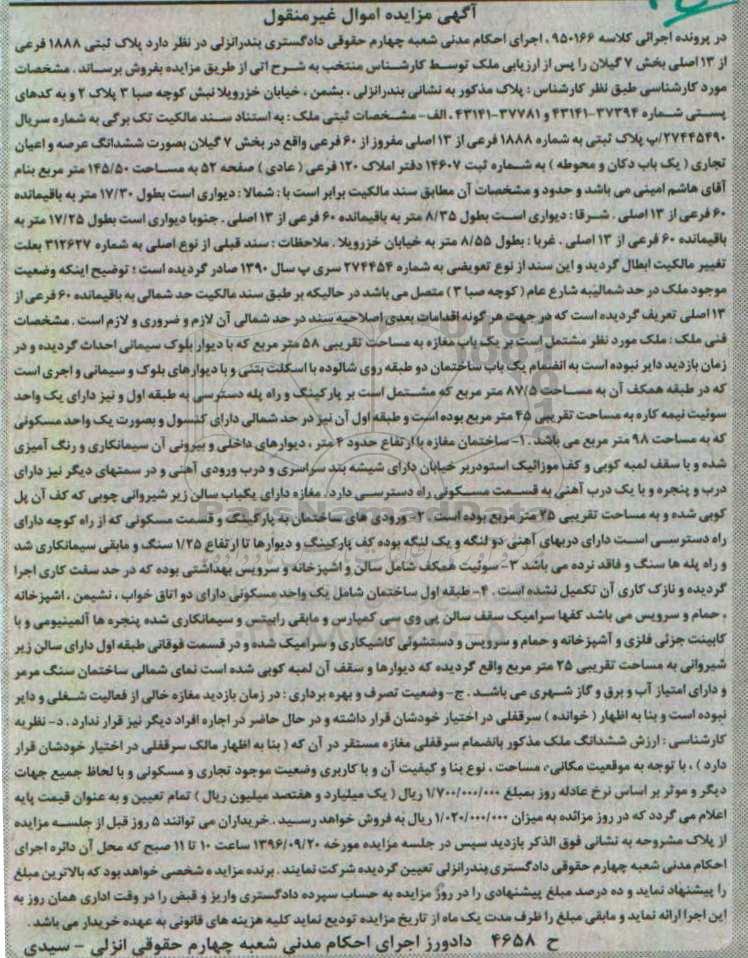 آگهی مزایده اموال غیرمنقول
در پرونده اجرائی کلاسه ۹۵۰۱۶۶ ، اجرای احکام مدنی شعبه چهارم حقوقی دادگستری بندرانزلی در نظر دارد پلاک ثبتی ۱۸۸۸ فرعی
از ۱۳ اصلی بخش ۷ گیلان را پس از ارزیابی ملک توسط کارشناس منتخب به شرح اتی از طریق مزایده بفروش برساند . مشخصات
مورد کارشناسی طبق نظر کارشناس : پلاک مذکور به نشانی بندرانزلی ، بشمن ، خیابان خزرویلا نبش کوچه صبا ۳ پلاک ۲ و به کدهای
پستی شماره ۳۷۳۹۴-۴۳۱۴۱ و ۳۷۷۸۱-۴۳۱۴۱ . الف- مشخصات ثبتی ملک : به استناد سند مالکیت تک برگی به شماره سریال
۲۷۴۴۵۴۹۰/پ پلاک ثبتی به شماره ۱۸۸۸ فرعی از ۱۳ اصلی مفروز از ۶۰ فرعی واقع در بخش ۷ گیلان بصورت ششدانگ عرصه و اعیان
تجاری ( یک باب دکان و محوطه ) به شماره ثبت ۱۴۶۰۷ دفتر املاک ۱۲۰ فرعی ( عادی ) صفحه ۵۲ به مساحت ۱۴۵/۵۰ متر مربع بنام
آقای هاشم امینی می باشد و حدود و مشخصات آن مطابق سند مالکیت برابر است با : شمالا : دیواری است بطول ۱۷/۳۰ متر به باقیمانده
۶۰ فرعی از ۱۳ اصلی . شرقا : دیواری است بطول ۸/۳۵ متر به باقیمانده ۶۰ فرعی از ۱۳ اصلی . جنوبا دیواری است بطول ۱۷/۲۵ متر به
باقیمانده ۶۰ فرعی از ۱۳ اصلی . غربا : بطول ۸/۵۵ متر به خیابان خزرویلا . ملاحظات : سند قبلی از نوع اصلی به شماره ۳۱۲۶۲۷ بعلت
تغییر مالکیت ابطال گردید و این سند از نوع تعویضی به شماره ۲۷۴۴۵۴ سری پ سال ۱۳۹۰ صادر گردیده است ؛ توضیح اینکه وضعیت
موجود ملک در حد شمالیبه شارع عام ( کوچه صبا ۳ ) متصل می باشد در حالیکه بر طبق سند مالکیت حد شمالی به باقیمانده ۶۰ فرعی از
۱۳ اصلی تعریف گردیده است که در جهت هر گونه اقدامات بعدی اصلاحیه سند در حد شمالی آن لازم و ضروری و لازم است . مشخصات
فنی ملک : ملک مورد نظر مشتمل است بر یک باب مغازه به مساحت تقریبی ۵۸ متر مربع که با دیوار بلوک سیمانی احداث گردیده و در
زمان بازدید دایر نبوده است به انضمام یک باب ساختمان دو طبقه روی شالوده با اسکلت بتنی و با دیوارهای بلوک و سیمانی و اجری است
که در طبقه همکف آن به مساحت ۸۷/۵ متر مربع که مشتمل است بر پارکینگ و راه پله دسترسی به طبقه اول و نیز دارای یک واحد
سوئیت نیمه کاره به مساحت تقریبی ۴۵ متر مربع بوده است و طبقه اول آن نیز در حد شمالی دارای کنسول و بصورت یک واحد مسکونی
که به مساحت ۹۸ متر مربع می باشد . ۱- ساختمان مغازه با ارتفاع حدود ۴ متر ، دیوارهای داخلی و بیرونی آن سیمانکاری و رنگ آمیزی
شده و با سقف لمبه کوبی و کف موزائیک استودربر خیابان دارای شیشه بند سراسری و درب ورودی آهنی و در سمتهای دیگر نیز دارای
درب و پنجره و با یک درب آهنی به قسمت مسکونی راه دسترسی دارد . مغازه دارای یکباب سالن زیر شیروانی چوبی که کف آن پل
کوبی شده و به مساحت تقریبی ۲۵ متر مربع بوده است ۲- ورودی های ساختمان به پارکینگ و قسمت مسکونی که از راه کوچه دارای
راه دسترسی است دارای دربهای آهنی دو لنگه و یک لنگه بوده کف پارکینگ و دیوارها تا ارتفاع ۱/۲۵ سنگ و مابقی سیمانکاری شد
و راه پله ها سنگ و فاقد نرده می باشد ۳- سوئیت همکف شامل سالن و اشپزخانه و سرویس بهداشتی بوده که در حد سفت کاری اجرا
گردیده و نازک کاری آن تکمیل نشده است . ۴- طبقه اول ساختمان شامل یک واحد مسکونی دارای دو اتاق خواب ، نشیمن ، اشپزخانه
، حمام و سرویس می باشد کفها سرامیک سقف سالن پی وی سی کمپارس و مابقی رابیتس و سیمانکاری شده پنجره ها آلمینیومی و با
کابینت جزئی فلزی و آشپزخانه و حمام و سرویس و دستشوئی کاشیکاری و سرامیک شده و در قسمت فوقانی طبقه اول دارای سالن زیر
شیروانی به مساحت تقریبی ۲۵ متر مربع واقع گردیده که دیوارها و سقف آن لمبه کوبی شده است نمای شمالی ساختمان سنگ مرمر
و دارای امتیاز آب و برق و گاز شهری می باشد . ج- وضعیت تصرف و بهره برداری : در زمان بازدید مغازه خالی از فعالیت شغلی و دایر
نبوده است و بنا به اظهار ( خوانده ) سرقفلی در اختیار خودشان قرار داشته و در حال حاضر در اجاره افراد دیگر نیز قرار ندارد . د- نظریه
کارشناسی : ارزش ششدانگ ملک مذکور بانضمام سرقفلی مغازه مستقر در آن که ( بنا به اظهار مالک سرقفلی در اختیار خودشان قرار
دارد ) ، با توجه به موقعیت مکانی ، مساحت ، نوع بنا و کیفیت آن و با کاربری وضعیت موجود تجاری و مسکونی و با لحاظ جمیع جهات
دیگر و موثر بر اساس نرخ عادله روز بمبلغ ۱/۷۰۰/۰۰۰/۰۰۰ ریال ( یک میلیارد و هفتصد میلیون ریال ) تمام تعیین و به عنوان قیمت پایه
اعلام می گردد که در روز مزائده به میزان ۱/۰۲۰/۰۰۰/۰۰۰ ریال به فروش خواهد رسید . خریداران می توانند ۵ روز قبل از جلسه مزایده
از پلاک مشروحه به نشانی فوق الذکر بازدید سپس در جلسه مزایده مورخه ۱۳۹۶/۰۹/۲۰ ساعت ۱۰ تا ۱۱ صبح که محل آن دائره اجرای
احکام مدنی شعبه چهارم حقوقی دادگستری بندرانزلی تعیین گردیده شرکت نمایند . برنده مزایده شخصی خواهد بود که بالاترین مبلغ
را پیشنهاد نماید و ده درصد مبلغ پیشنهادی را در روز مزایده به حساب سپرده دادگستری واریز و قبض را در وقت اداری همان روز به
این اجرا ارائه نماید و مابقی مبلغ را ظرف مدت یک ماه از تاریخ مزایده تودیع نماید کلیه هزینه های قانونی به عهده خریدار می باشد .
ح ۴۶۵۸ دادورز اجرای احکام مدنی شعبه چهارم حقوقی انزلی - سیدی